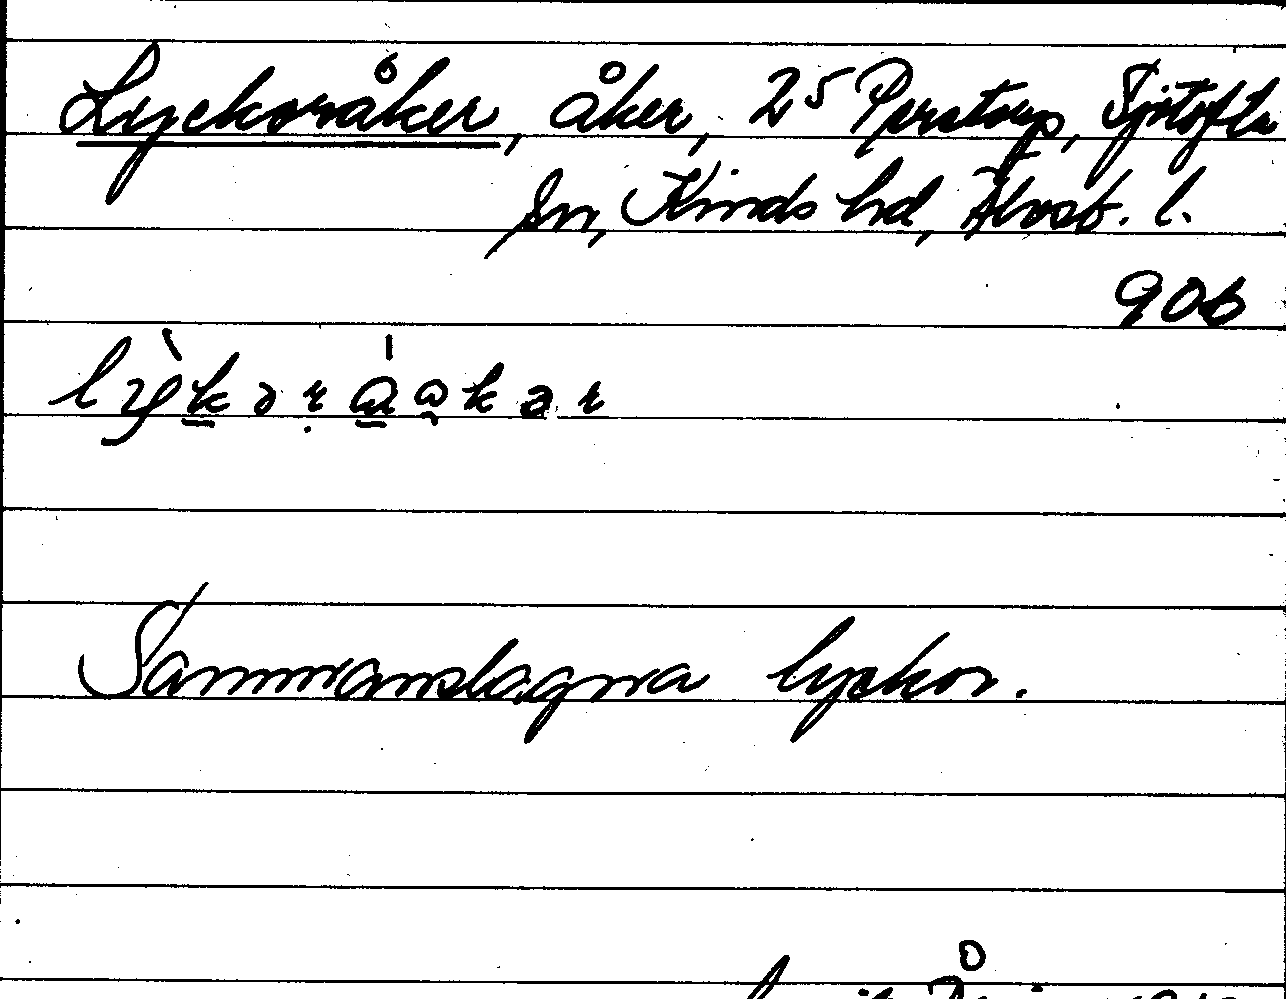 Lyckoråker, åker, 2⁵ Perstorp, Tjotofta
sn, Kinds hd, Älvsb. l.
906
lỳkərákər
Sammanslagna lyckor.